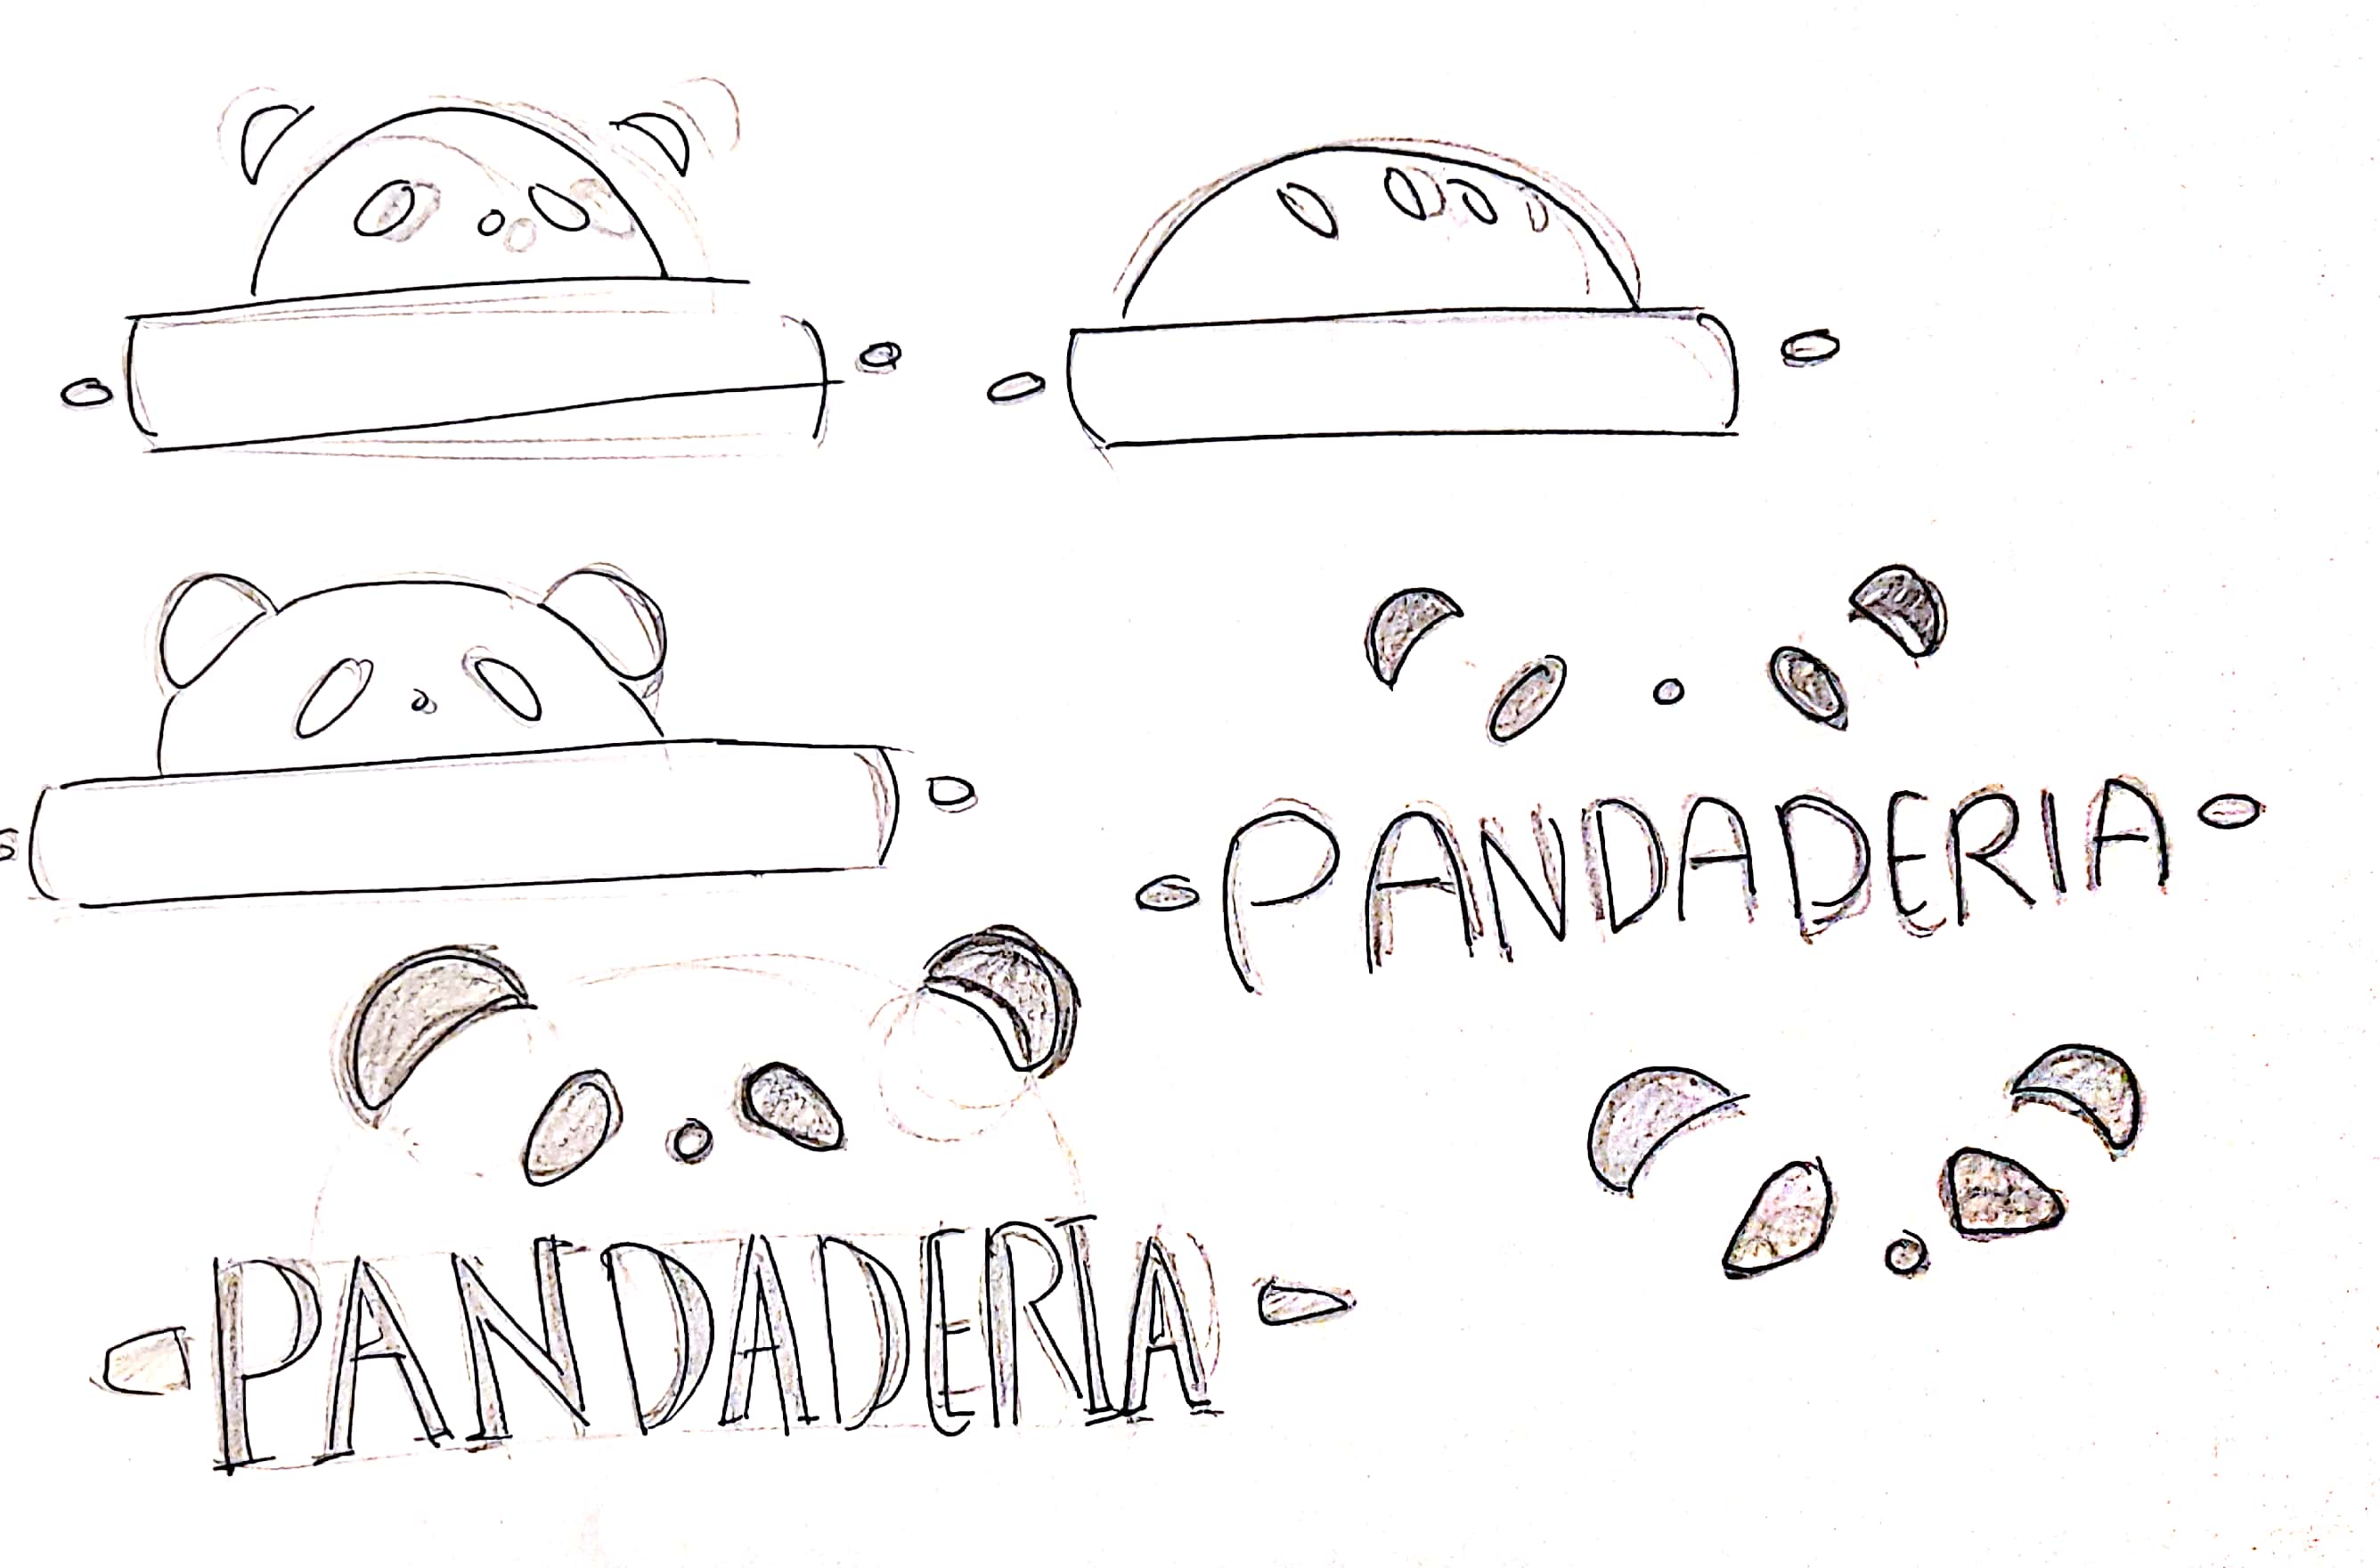 PANDADERIA
PANDADERIA